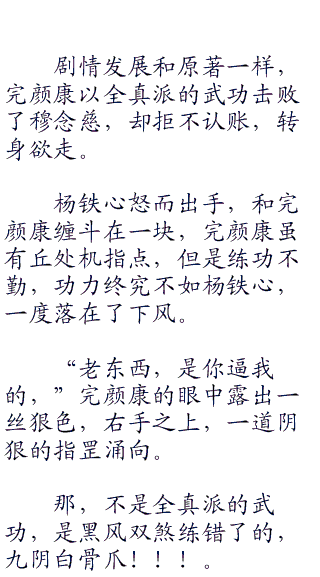 剧情发展和原著一样，
完颜康以全真派的武功击败
了穆念慈，却拒不认账，转
身欲走。
杨铁心怒而出手，和完
颜康缠斗在一块，完颜康虽
有丘处机指点，但是练功不
勤，功力终究不如杨铁心，
一度落在了下风。
“老东西，是你逼我
的，”完颜康的眼中露出一
丝狠色，右手之上，一道阴
狠的指罡涌向。
那，不是全真派的武
功，是黑风双煞练错了的，
九阴白骨爪！！！。